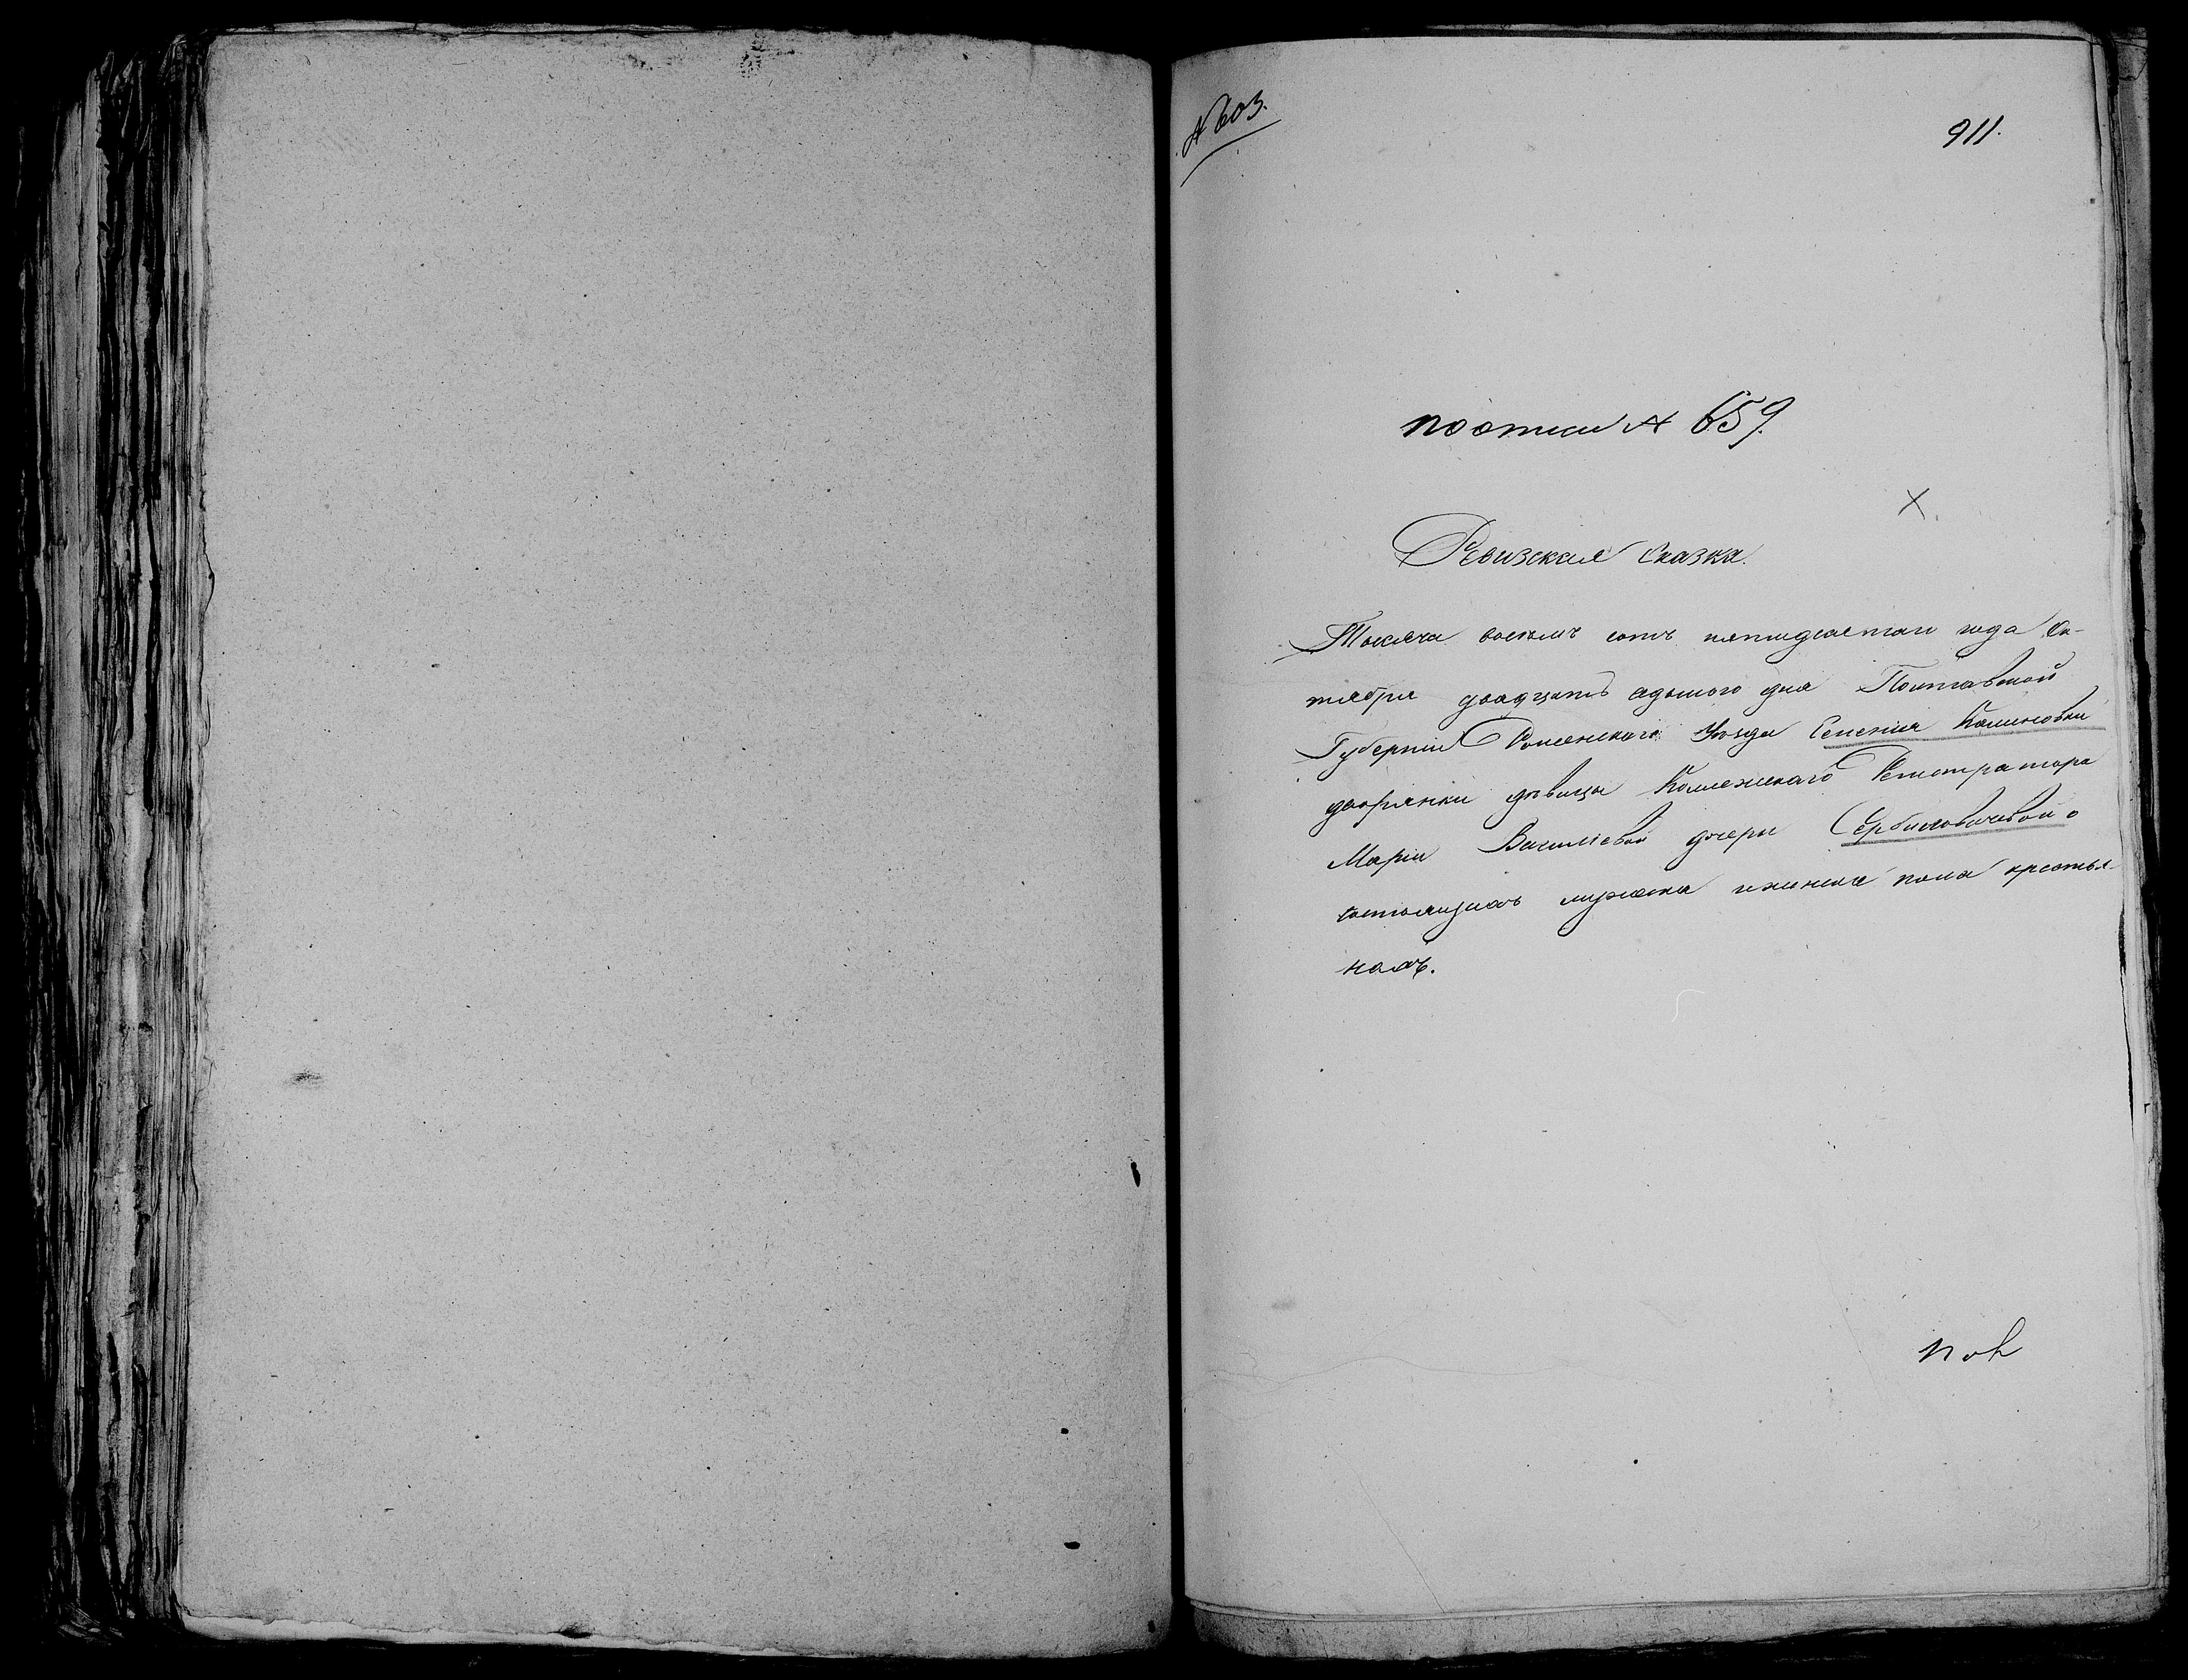 № 603.
911.
по описи № 659.
Х.
Ревизская Сказка.
Тысяча восемь сотъ пятидесятаго года Ок-
тября двадцать седьмого дня Полтавской
Губерніи Роменскаго Уѣзда Селенія Калиновки
дворянки дѣвицы Коллежскаго Регистратора
Маріи Васильевой дочери Сербиновичевой о
состоящихъ мужеска и женска пола крестья-
нахъ.